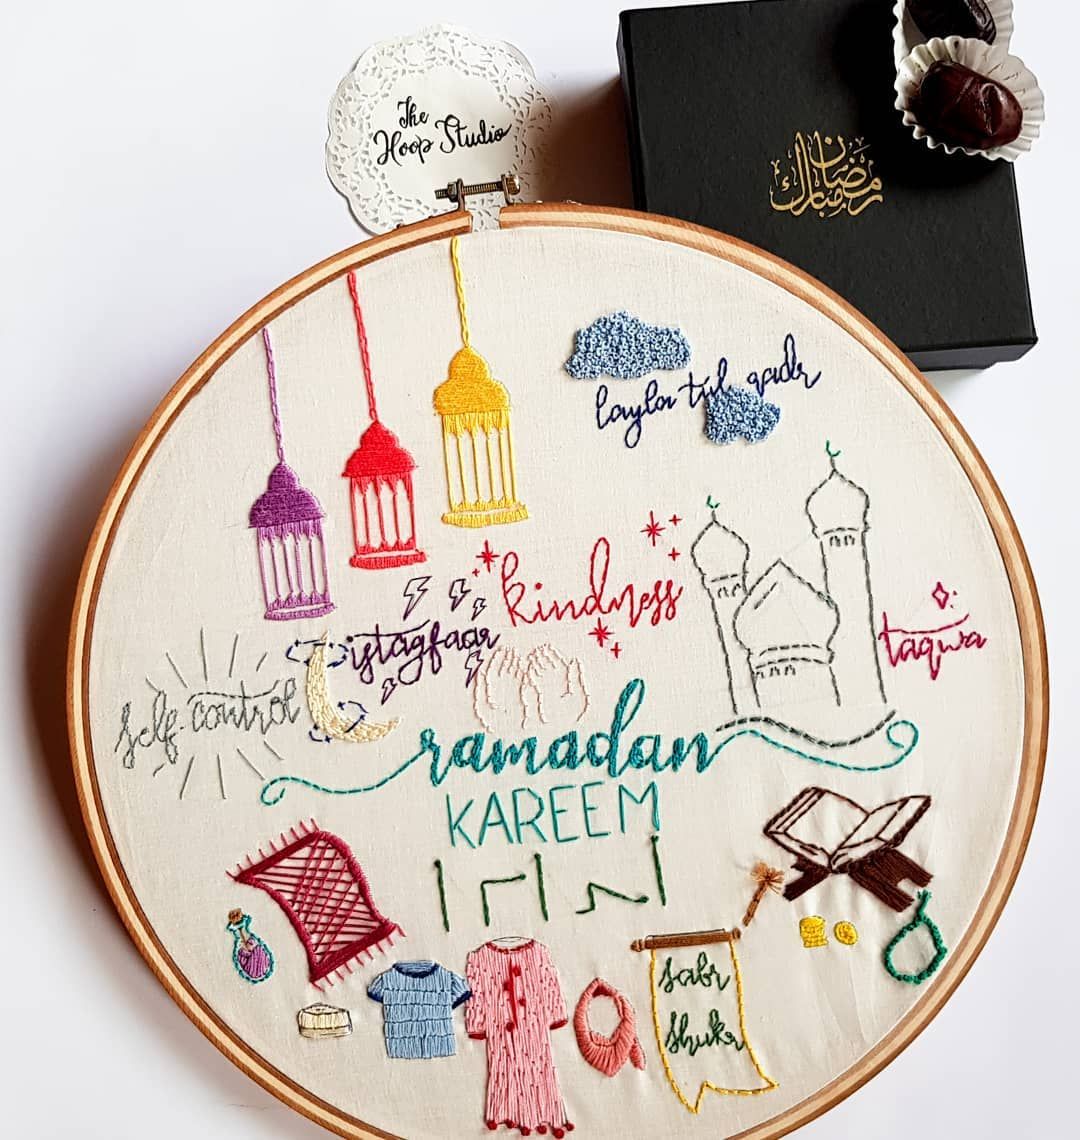 The
Hoop Studio
رمضان مبارك
layla tul qadr
kindness
istagfaar
taqwa
self-control
ramadan
KAREEM
sabr
shukr